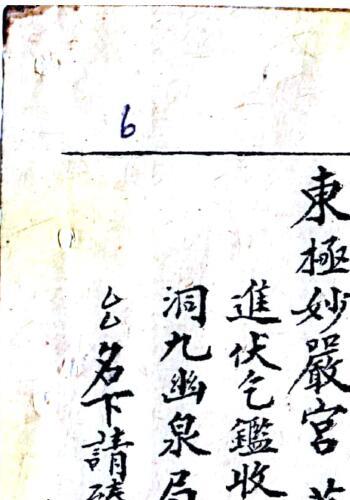 6
東極妙嚴宮
進伏乞鑑收
洞九幽泉局
厶厶名下請